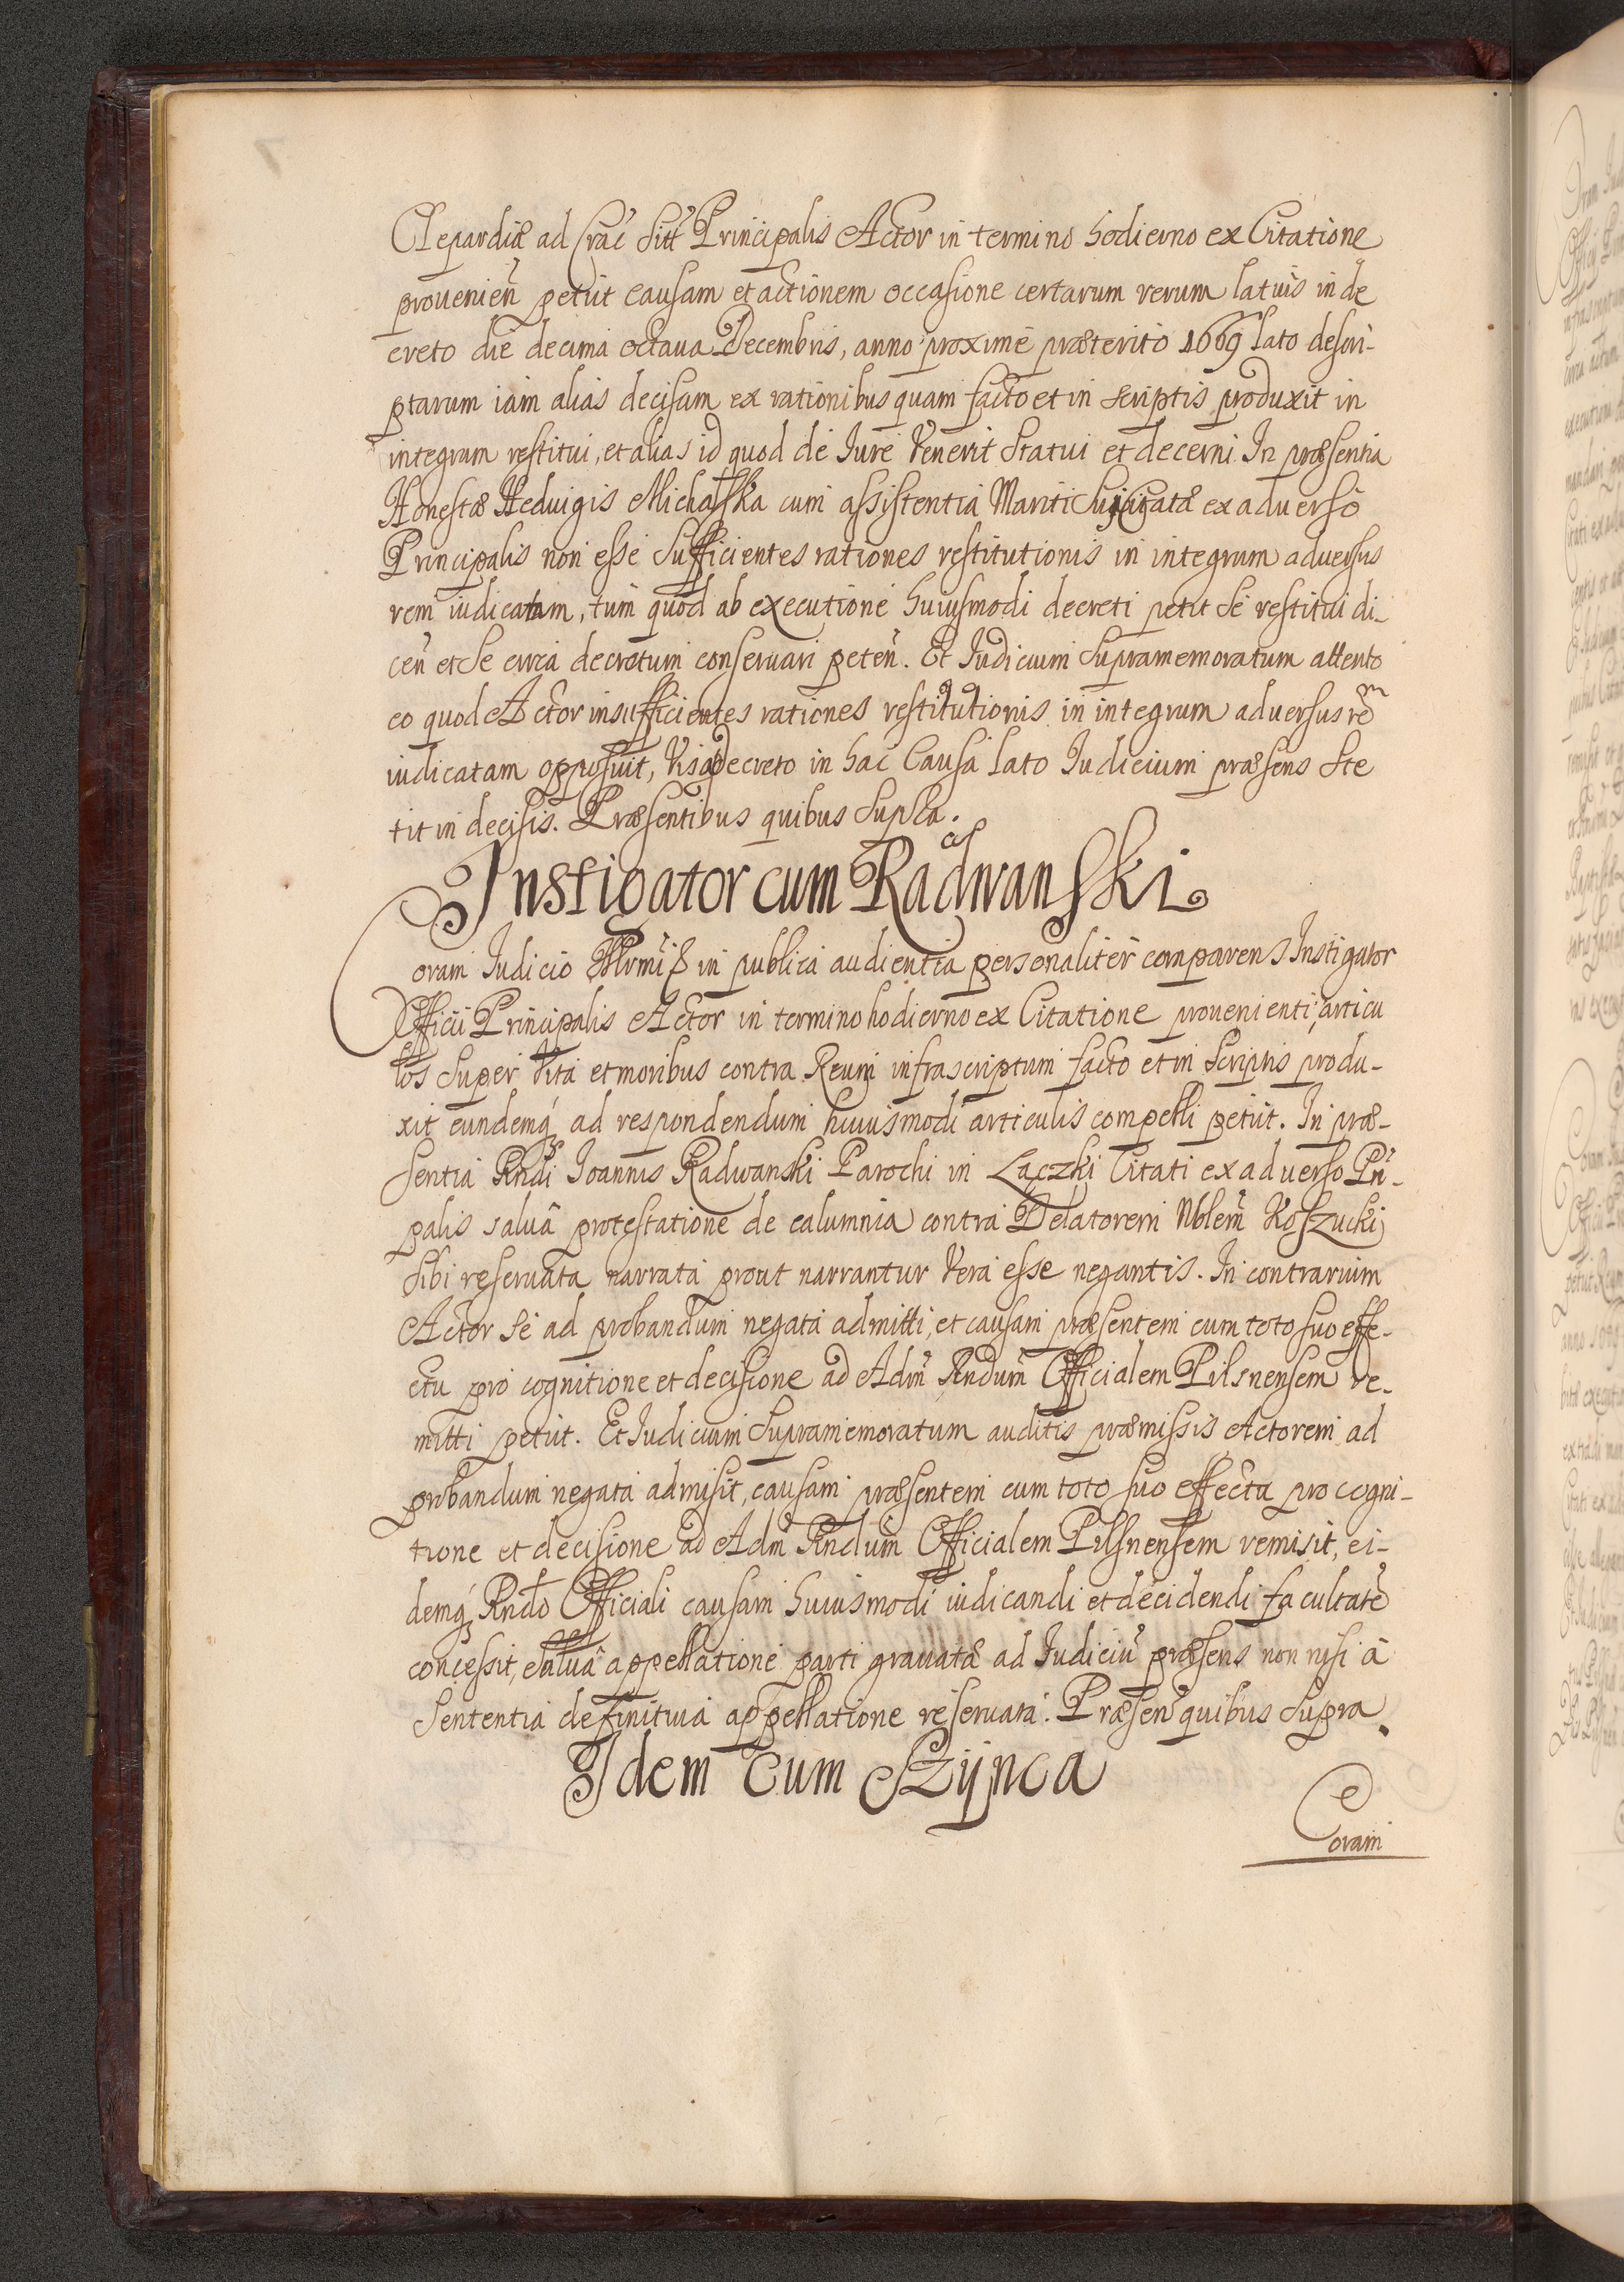 Clepardiæ ad Crac̃ Sitt̃ Principalis Actor in termino hodierno ex Citatione
provenien̄ petijt causam et actionem occasione certarum rerum latius in de
creto die decima octava Decembris, anno proxime præterito 1669 lato descri-
ptarum iam alias decisam ex rationibus quam facto et in scriptis produxit in
integrum restitui, et alias id quod de Iure venerit statui et decerni. In præsentia
Honestæ Heduigis Michalska cum assistentia Mariti sui Citatæ ex adverso
Principalis non esse sufficientes rationes restitutionis in integrum adversus
rem iudicatam, tum quod ab executione huiusmodi decreti petit se restitui di-
cen̄ et se circa decretum conservari peten̄. Et Iudicium supramemoratum attento
eo quod Actor insufficientes rationes restitutionis in integrum adversus rē
iudicatam opposuit, visoq decreto in hac Causa lato Iudicium præsens ste
tit in decisis. Præsentibus quibus supra.
Instigator cum Radwanski
Coram Iudicio in publica audientia personaliter comparens Instigator
Officii Principalis Actor in termino hodierno ex Citatione provenienti, articu
los super vita et moribus contra Reum infrascriptum facto et in scriptis produ-
xit eundemq́ ad respondendum huiusmodi articulis compelli petijt. In præ-
sentia Rndi Ioannis Radwanski Parochi in Łączki Citati ex adverso Prī-
palis salvâ protestatione de calumnia contra Delatorem Nblem̄ Koszucki
sibi reservata narrata prout narrantur vera esse negantis. In contrarium
Actor se ad probandum negata admitti, et causam præsentem cum toto suo effe-
ctu pro cognitione et decisione ad Adm̄ Rndum̄ Officialem Pilsnensem re-
mitti petijt. Et Iudicium supramemoratum auditis præmissis Actorem ad
probandum negata admisit, causam præsentem cum toto suo effectu pro cogni-
tione et decisione ad Adm̄ Rndum̄ Officialem Pilsnensem remisit, ei-
demq́ Rndo Officiali causam huiusmodi iudicandi et decidendi facultatē
concessit, salvâ appellatione parti gravatæ ad Iudiciū præsens non nisi â
sententia definitiva appellatione reservata. Præsen̄ quibus supra
Idem Cum Szÿnca
Coram